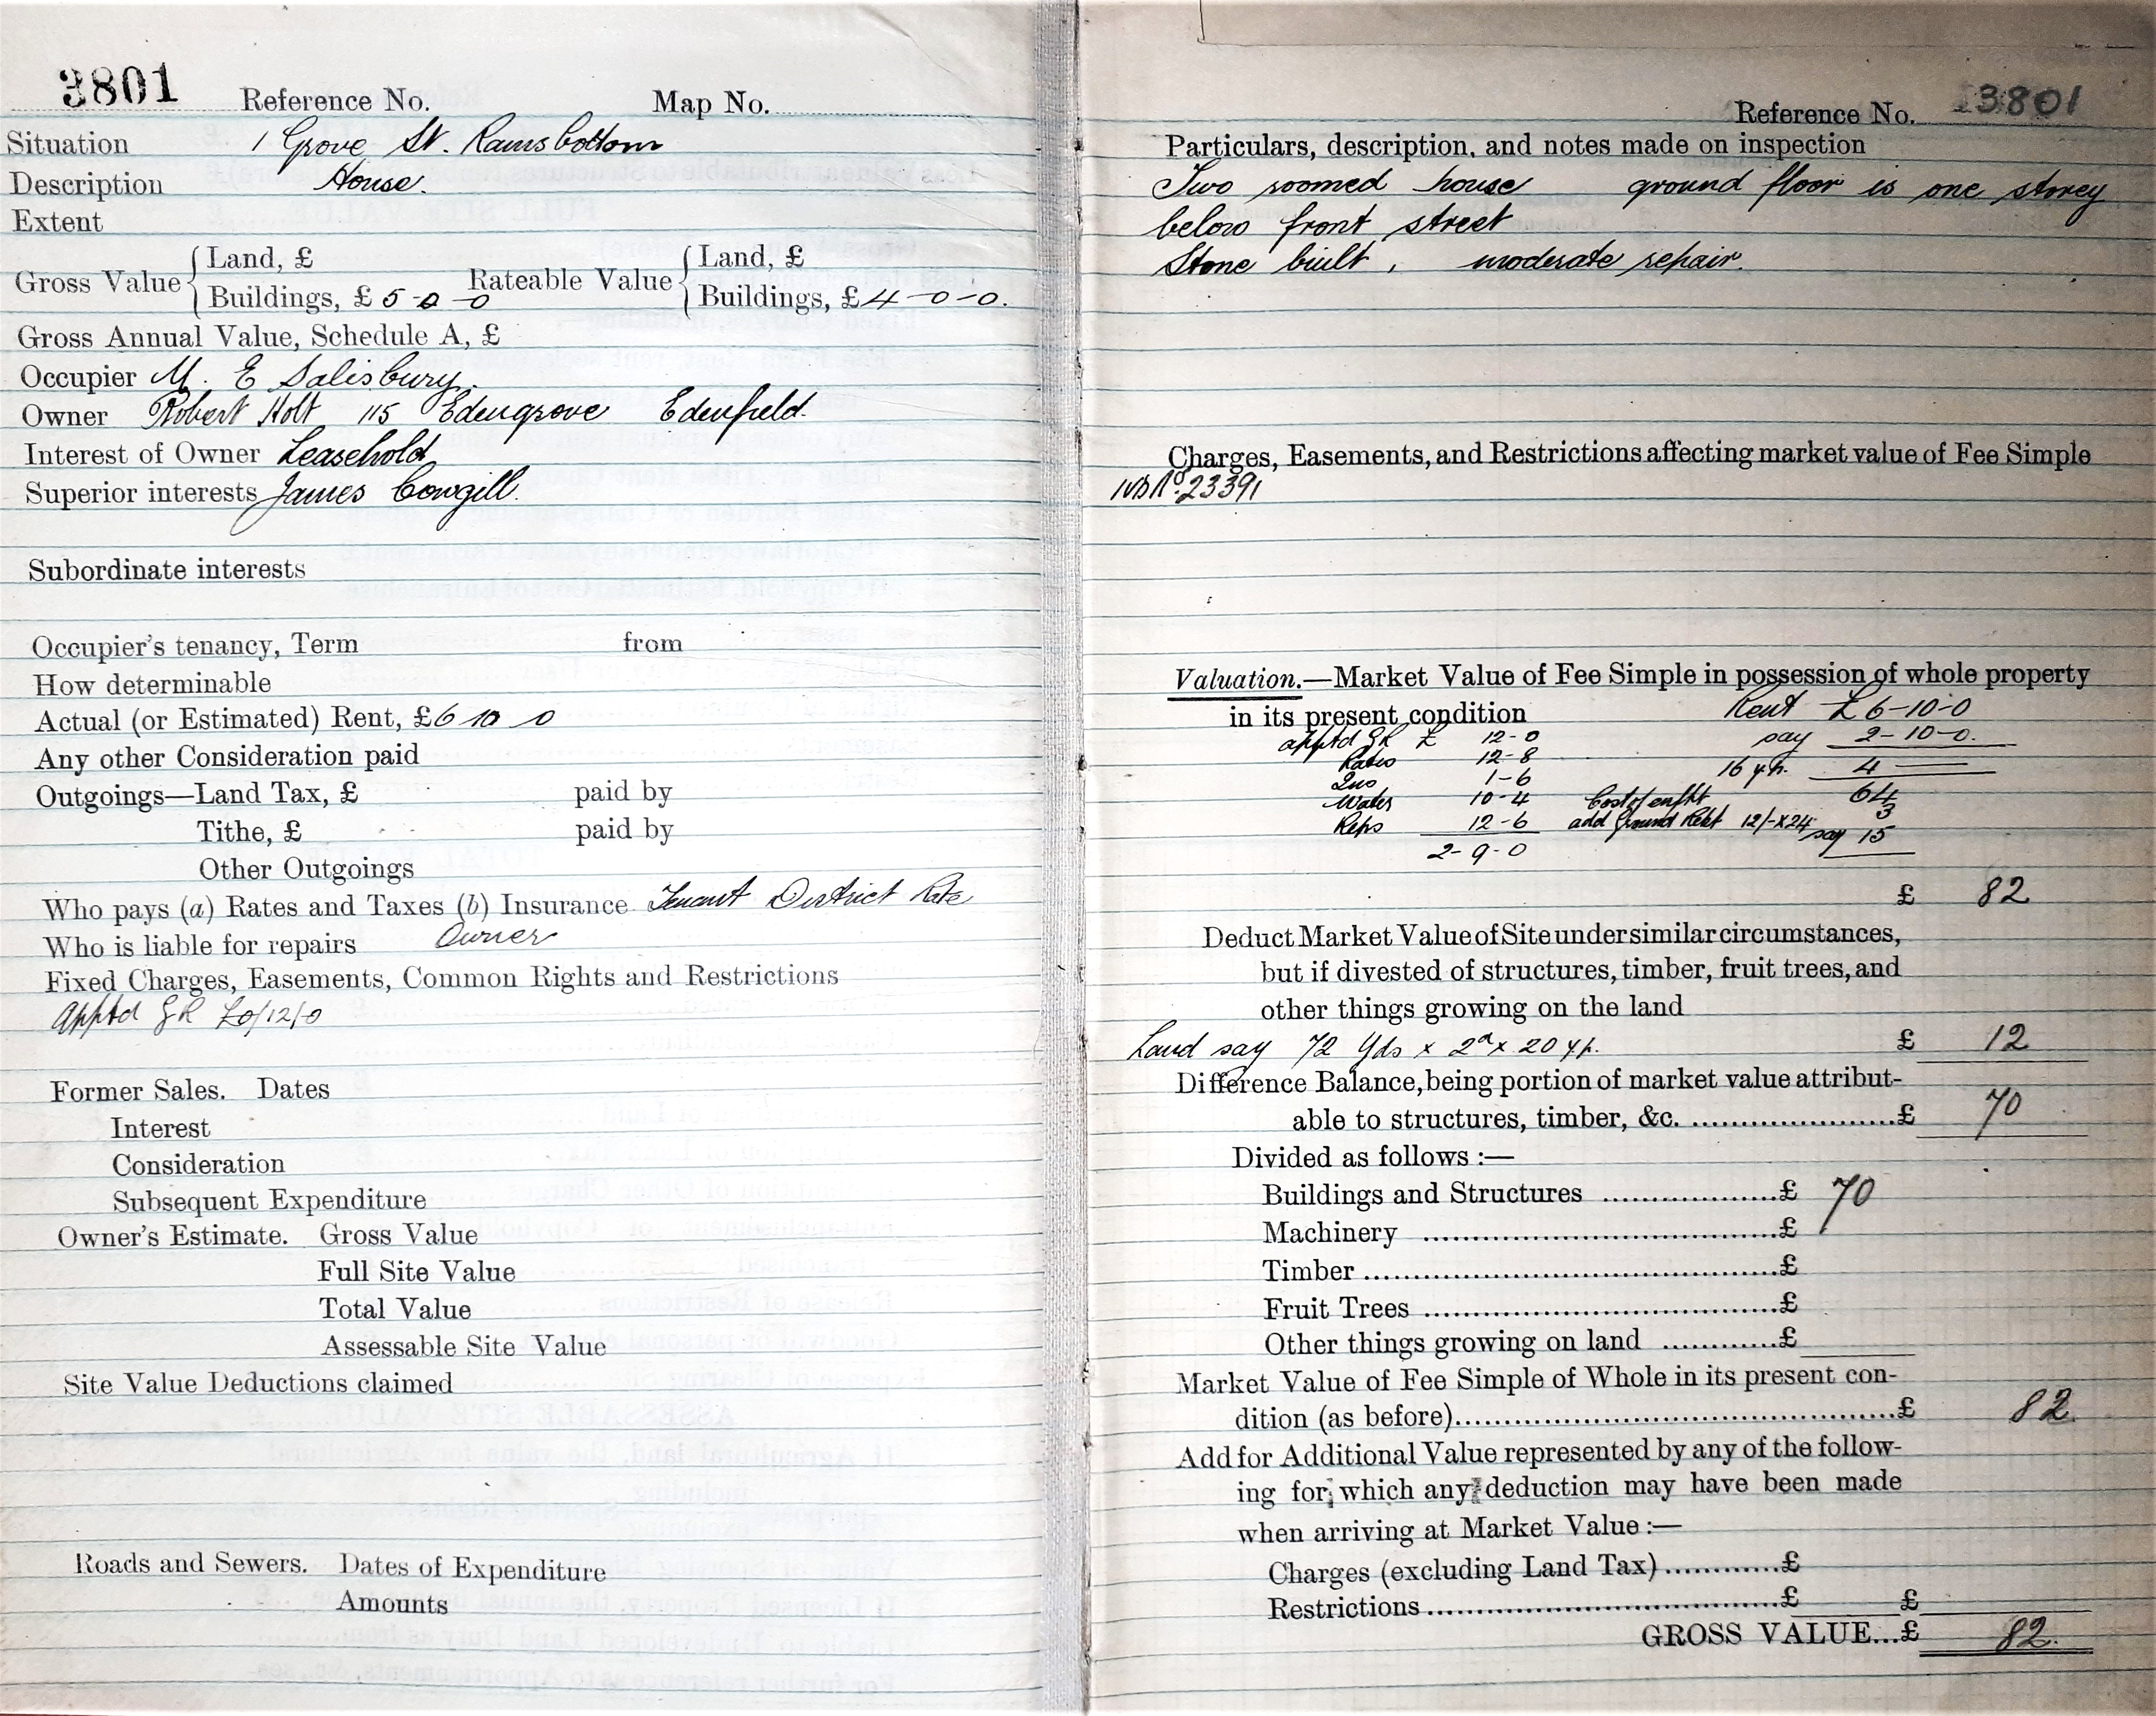 3801 Reference No. Map No.
Situation 1 Grove St. Ramsbottom
Description House.
Extent
Gross Value { Land, £ Rateable Value { Land, £
Buildings, £ 5-0-0 Buildings, £ 4-0-0.
Gross Annual Value, Schedule A, £
Occupier M. E Salisbury.
Owner Robert Holt 115 Edengrove Edenfield
Interest of Owner Leasehold
Superior interests James Cowgill.
Subordinate interests
Occupier's tenancy, Term from
How determinable
Actual (or Estimated) Rent, £6 10 0
Any other Consideration paid
Outgoings—Land Tax, £ paid by
Tithe, £ paid by
Other Outgoings
Who pays (a) Rates and Taxes (b) Insurance Tenant District Rate
Who is liable for repairs Owner
Fixed Charges, Easements, Common Rights and Restrictions
Apptd GR £0/12/0
Former Sales. Dates
Interest
Consideration
Subsequent Expenditure
Owner's Estimate. Gross Value
Full Site Value
Total Value
Assessable Site Value
Site Value Deductions claimed
Roads and Sewers. Dates of Expenditure
Amounts
Reference No. 3801
Particulars, description, and notes made on inspection
Two roomed house ground floor is one storey
below front street
Stone built, moderate repair.
Charges, Easements, and Restrictions affecting market value of Fee Simple
No. 23391
Valuation.—Market Value of Fee Simple in possession of whole property
in its present condition Rent £ 6-10-0
apptd GR £ 12-0 say 2-10-0.
Rates 12-8 16 y.p. 4 —
Ins 1-6 64
Water 10-4 Cost of enfht 3
Reps 12-6 add Ground Rent 12/- x 24 say 15
2-9-0
£ 82
Deduct Market Value of Site under similar circumstances,
but if divested of structures, timber, fruit trees, and
other things growing on the land
Land say 72 Yds x 2d x 20 y.p. £ 12
Difference Balance, being portion of market value attribut-
able to structures, timber, &c. ......................£ 70
Divided as follows :—
Buildings and Structures ...................£ 70
Machinery .......................................£
Timber .............................................£
Fruit Trees .......................................£
Other things growing on land ............£
Market Value of Fee Simple of Whole in its present con-
dition (as before)................................................£ 82.
Add for Additional Value represented by any of the follow-
ing for which any deduction may have been made
when arriving at Market Value :—
Charges (excluding Land Tax)............£
Restrictions.......................................£ £
GROSS VALUE...£ 82.